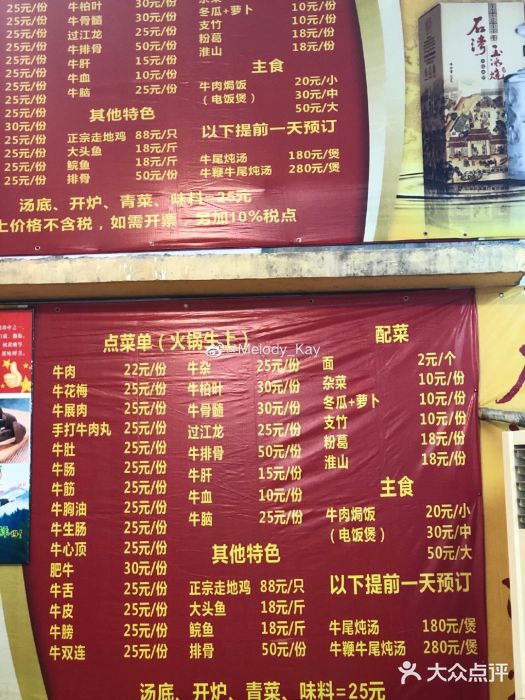 25元/份 牛柏叶 30元/份 杂菜 10元/份
25元/份 牛骨髓 30元/份 冬瓜+萝卜 10元/份
25元/份 过江龙 25元/份 支竹 10元/份
25元/份 牛排骨 50元/份 粉葛 18元/份
25元/份 牛肝 15元/份 淮山 18元/份
25元/份 牛血 10元/份 主食
25元/份 牛脑 25元/份 牛肉焗饭 20元/小
25元/份 其他特色 （电饭煲） 30元/中
30元/份 50元/大
25元/份 正宗走地鸡 88元/只 以下提前一天预订
25元/份 大头鱼 18元/斤
25元/份 鲩鱼 18元/斤 牛尾炖汤 180元/煲
25元/份 排骨 50元/份 牛鞭牛尾炖汤 280元/煲
汤底、开炉、青菜、味料=25元
上价格不含税，如需开票，另加10%税点
石湾
玉冰烧
点菜单（火锅生上）
牛肉 22元/份
牛花梅 25元/份
牛展肉 25元/份
手打牛肉丸 25元/份
牛肚 25元/份
牛肠 25元/份
牛筋 25元/份
牛胸油 25元/份
牛生肠 25元/份
牛心顶 25元/份
肥牛 30元/份
牛舌 25元/份
牛皮 25元/份
牛膀 25元/份
牛双连 25元/份
牛杂 25元/份
牛柏叶 30元/份
牛骨髓 30元/份
过江龙 25元/份
牛排骨 50元/份
牛肝 15元/份
牛血 10元/份
牛脑 25元/份
其他特色
正宗走地鸡 88元/只
大头鱼 18元/斤
鲩鱼 18元/斤
排骨 50元/份
配菜
面 2元/个
杂菜 10元/份
冬瓜+萝卜 10元/份
支竹 10元/份
粉葛 18元/份
淮山 18元/份
主食
牛肉焗饭 20元/小
（电饭煲） 30元/中
50元/大
以下提前一天预订
牛尾炖汤 180元/煲
牛鞭牛尾炖汤 280元/煲
汤底、开炉、青菜、味料=25元
@Melody_Kay
大众点评